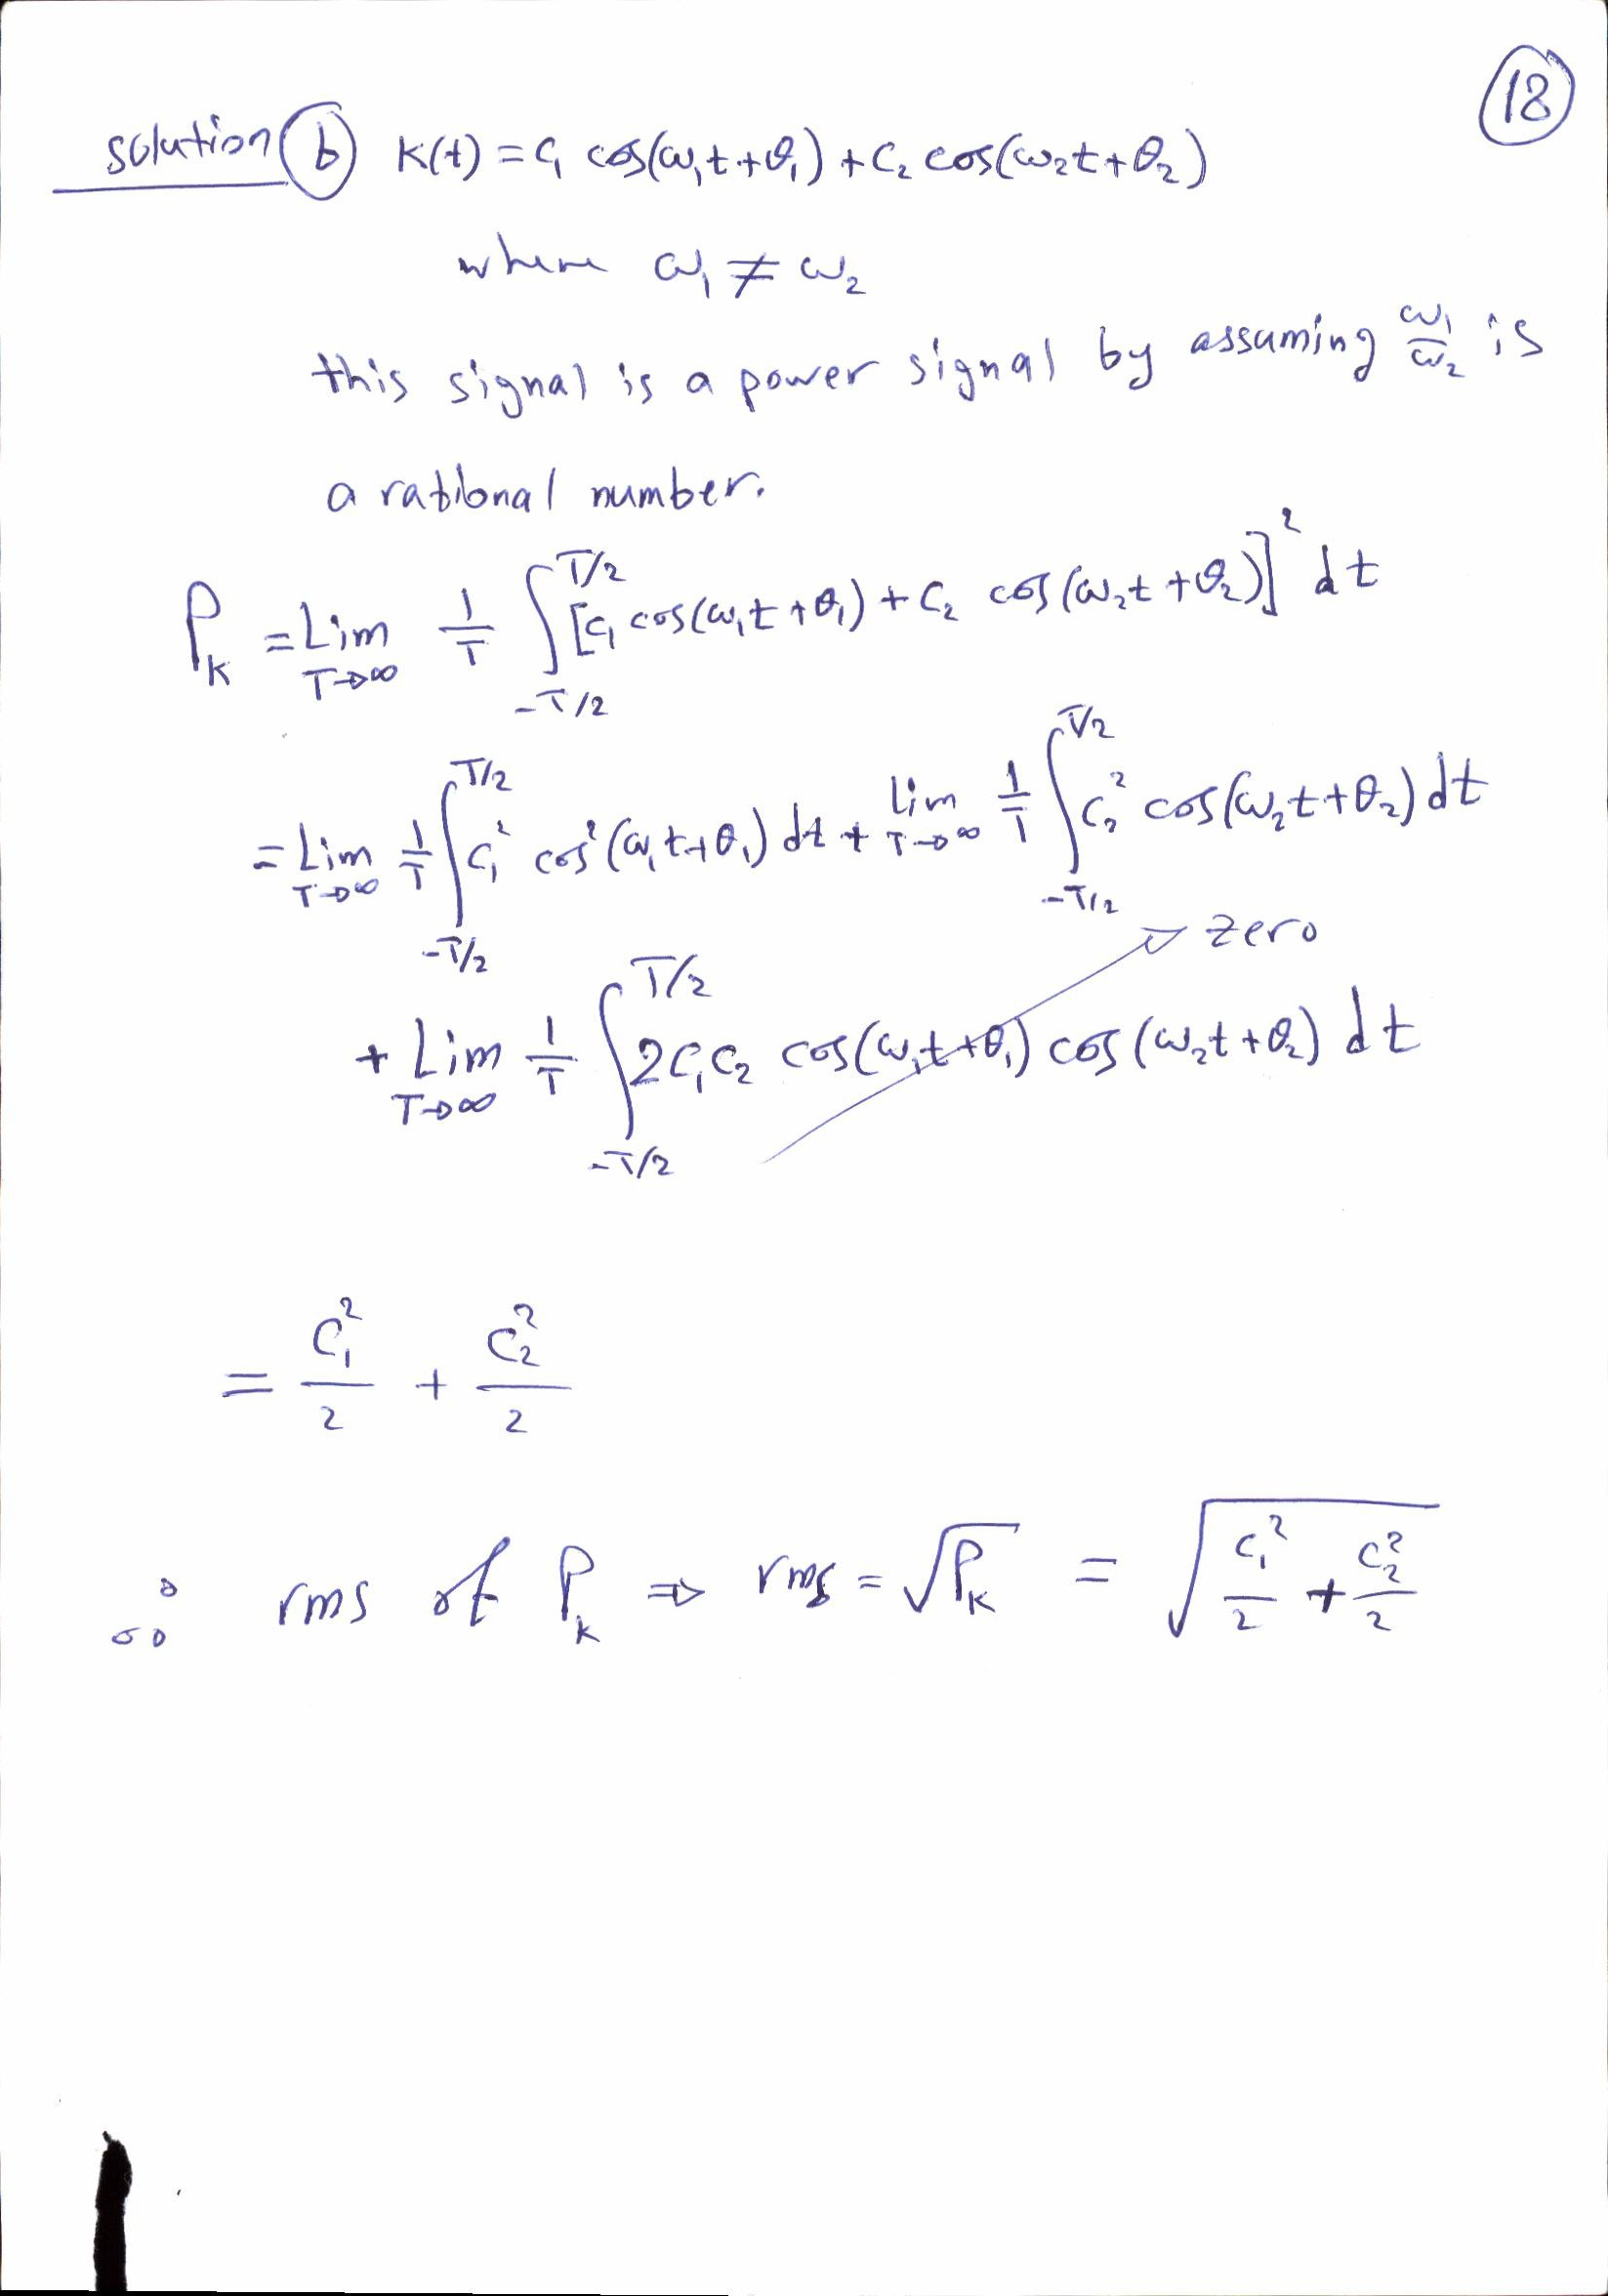 18
solution (b) K(t) = C₁ cos(ω₁t+θ₁) + C₂ cos(ω₂t+θ₂)
where ω₁ ≠ ω₂
this signal is a power signal by assuming ω₁/ω₂ is
a rational number.
P_K = Lim_{T→∞} 1/T ∫_{-T/2}^{T/2} [C₁ cos(ω₁t+θ₁) + C₂ cos(ω₂t+θ₂)]² dt
= Lim_{T→∞} 1/T ∫_{-T/2}^{T/2} C₁² cos²(ω₁t+θ₁) dt + lim_{T→∞} 1/T ∫_{-T/2}^{T/2} C₂² cos(ω₂t+θ₂) dt
zero
+ Lim_{T→∞} 1/T ∫_{-T/2}^{T/2} 2C₁C₂ cos(ω₁t+θ₁) cos(ω₂t+θ₂) dt
= C₁²/2 + C₂²/2
∴ rms of P_K ⇒ rms = √P_K = √(C₁²/2 + C₂²/2)